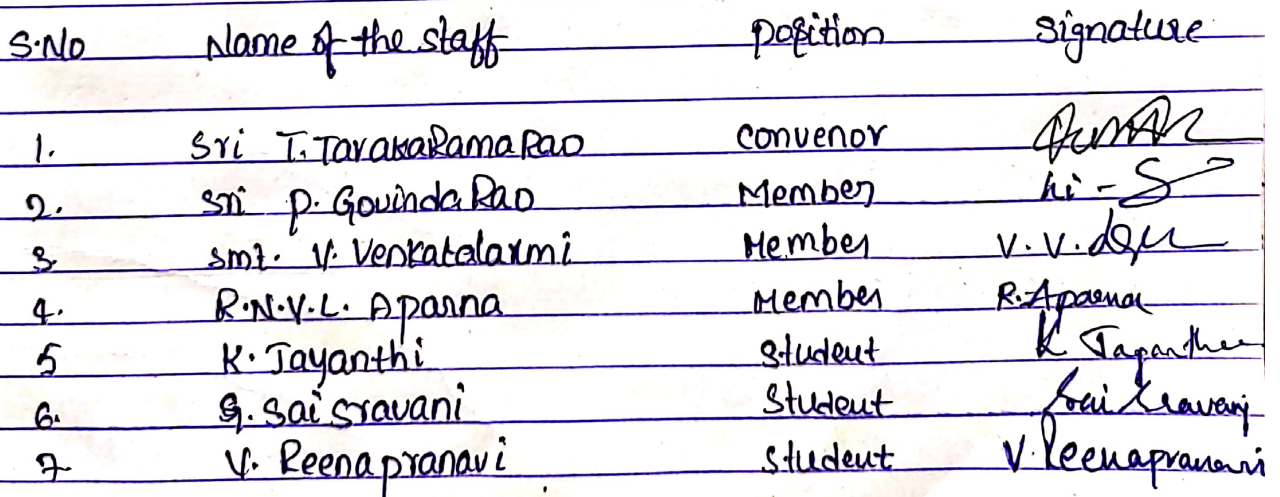 S.No Name of the staff Position Signature
1. Sri T. TarakaRama Rao Convenor
2. Sri P. Govinda Rao Member
3 Smt. V. Venkatalaxmi Member V.V.
4. R.N.V.L. Aparna Member R.Aparna
5 K. Jayanthi Student K Jayanthi
6. G. Sai Sravani Student Sai Sravani
7 V. Reenapranavi Student V.Reenapranavi